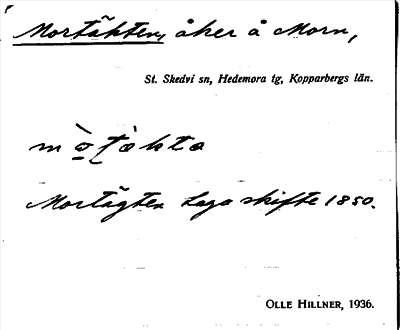 Mortäkten, åker å Morn,
St. Skedvi sn, Hedemora tg, Kopparbergs län.
Mortägten Laga skifte 1850.
OLLE HILLNER, 1936.